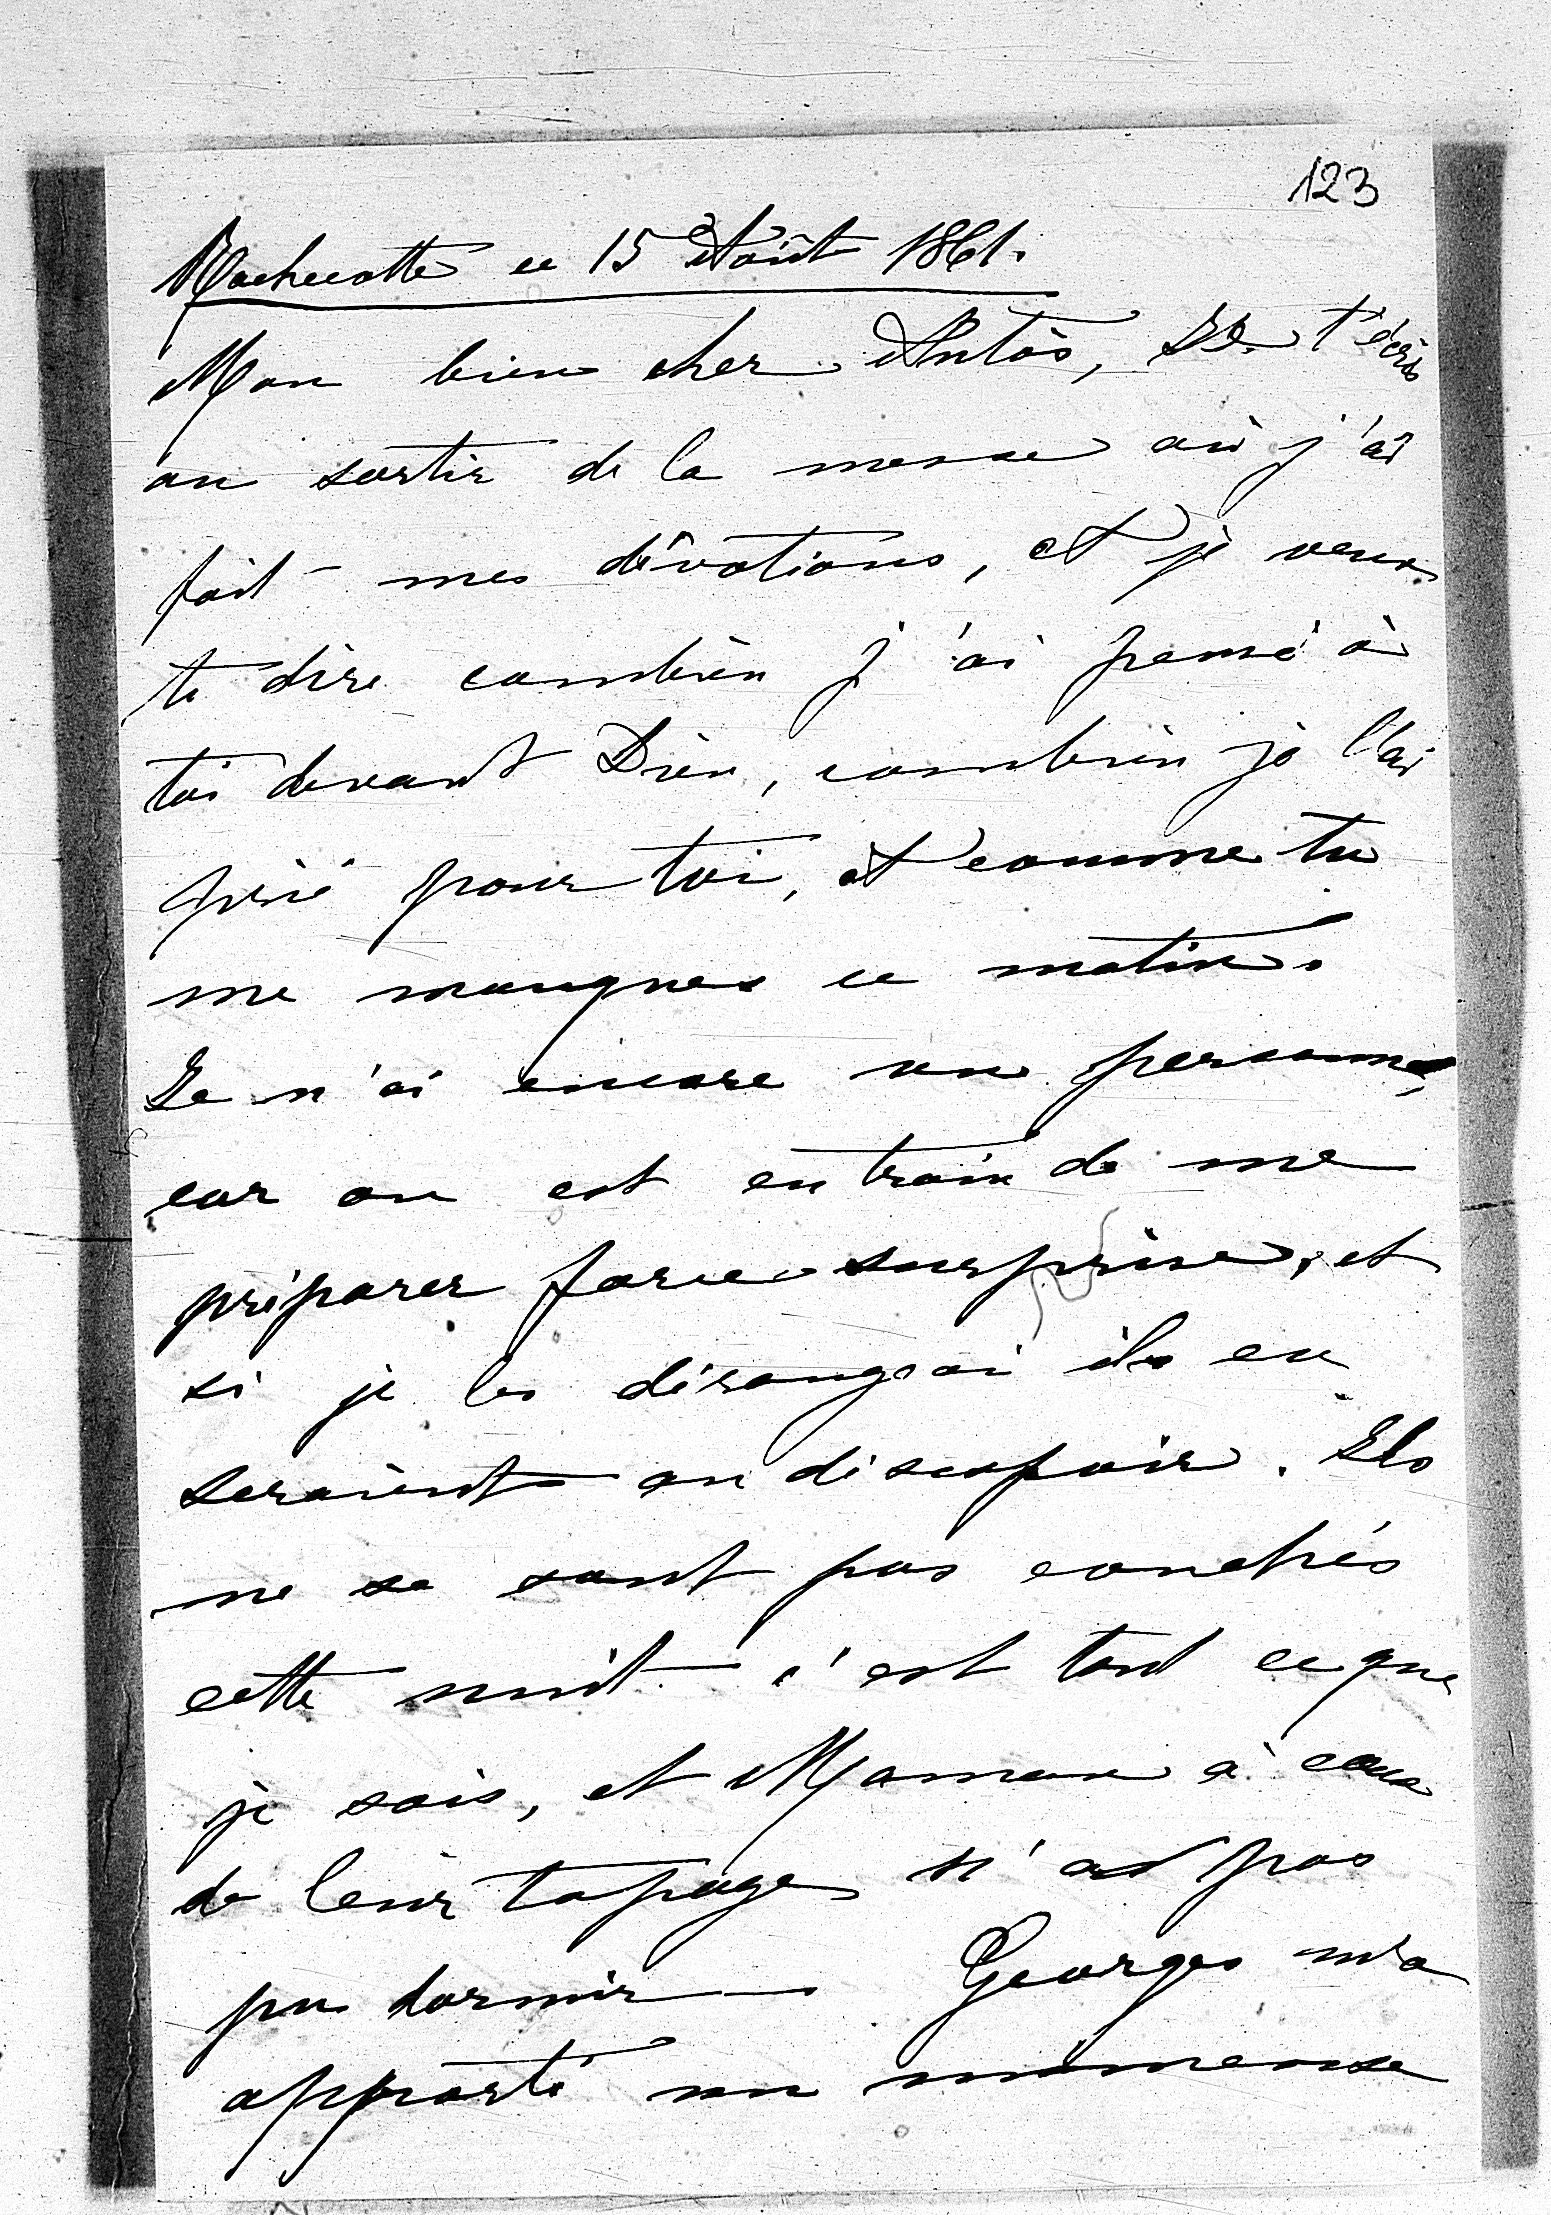 123
Rochecotte ce 15 Août 1861.
Mon bien cher Antos, Je t'écris
au sortir de la messe où j'ai
fait mes dévotions, et je veux
te dire combien j'ai pensé à
toi devant Dieu, combien je l'ai
prié pour toi, et comme tu
me manques ce matin.
Je n'ai encore vu personne,
car on est en train de me
préparer force surprises, et
si je les dérangeai ils en
seraient au désespoir. Ils
ne se sont pas couchés
cette nuit c'est tout ce que
je sais, et Maman à cause
de leur tapage n'at pas
pu dormir — Georges m'a
apporté un